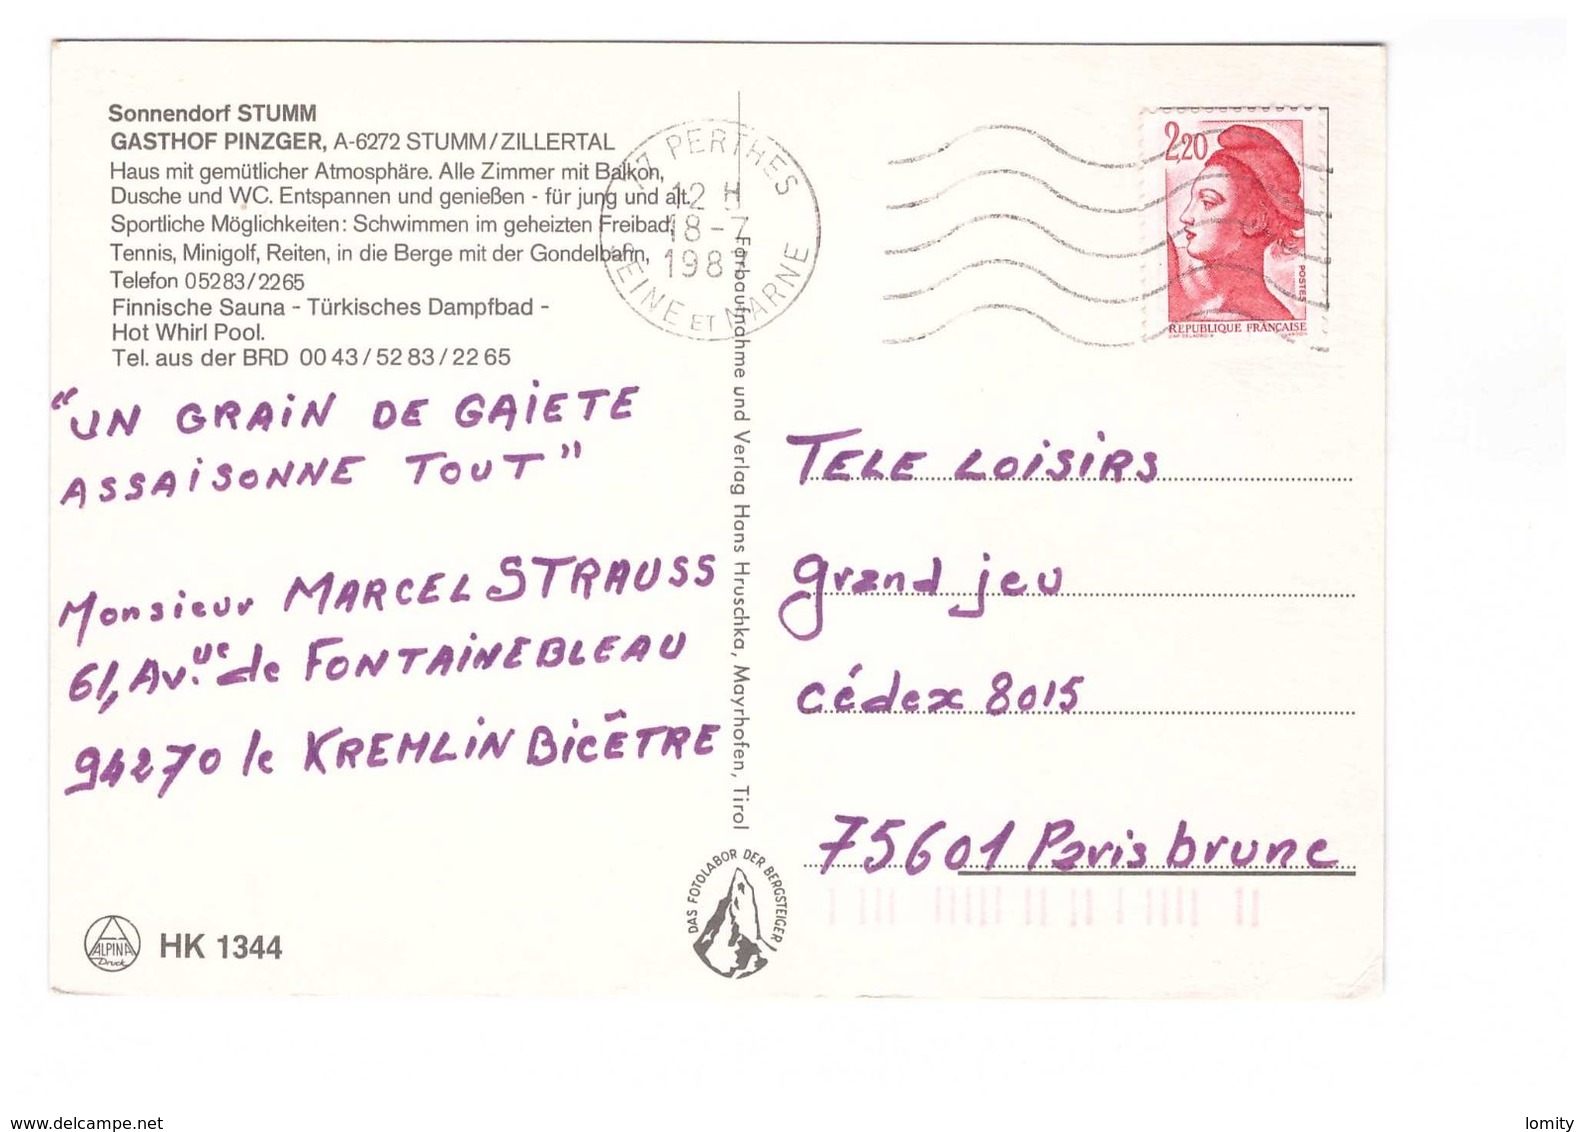 Sonnendorf STUMM
GASTHOF PINZGER, A-6272 STUMM/ZILLERTAL
Haus mit gemütlicher Atmosphäre. Alle Zimmer mit Balkon,
Dusche und WC. Entspannen und genießen - für jung und alt.
Sportliche Möglichkeiten: Schwimmen im geheizten Freibad,
Tennis, Minigolf, Reiten, in die Berge mit der Gondelbahn,
Telefon 05283/2265
Finnische Sauna - Türkisches Dampfbad -
Hot Whirl Pool.
Tel. aus der BRD 00 43 / 52 83 / 22 65
"UN GRAIN DE GAIETE
ASSAISONNE TOUT"
Monsieur MARCEL STRAUSS
61, Av.ue de FONTAINEBLEAU
94270 le KREMLIN BICÊTRE
ALPINA
Druck
HK 1344
77 PERTHES
12 H
18-7
198
SEINE ET MARNE
Farbaufnahme und Verlag Hans Hruschka, Mayrhofen, Tirol
DAS FOTOLABOR DER BERGSTEIGER
2,20
POSTES
REPUBLIQUE FRANÇAISE
TELE LOISIRS
grand jeu
cédex 8015
75601 Paris brune
www.delcampe.net
lomity